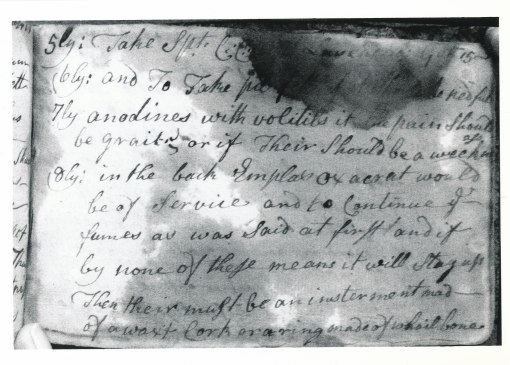 5ly: Take Spt. C: C:
(6ly: and To Take
7ly anodines with volitils if the pain Should
be grait or if Their Should be a weekness
(8ly: in the back Emplas oxacret would
be of Service and to Continue ye
fumes as was Said at first and if
by none of these means it will Stay up
Then their must be an instermont mad
of a waxt Cork or a ring made of whail bone